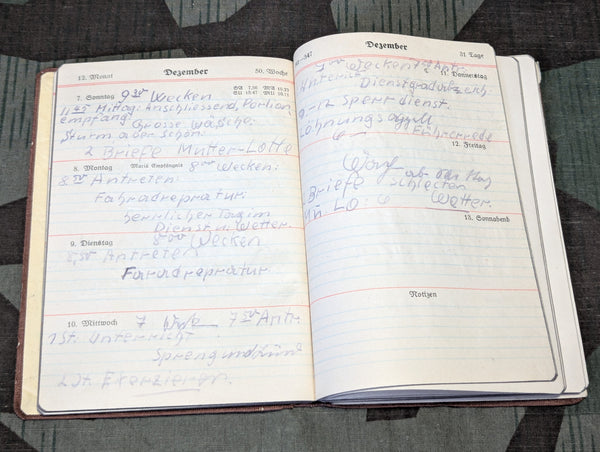 12. Monat Dezember 50. Woche
7. Sonntag 9 30 Wecken
11 45 Mittag: Anschliessend, Portion
empfang
Grosse Wäsche:
Sturm aber schön:
2 Briefe Mutter-Lotte
8. Montag Mariä Empfängnis 8 00 Wecken:
8 50 Antreten:
Fahradrepratur:
herrlicher Tag im
Dienst u. Wetter.
9. Dienstag 8 00 Wecken
8,50 Antreten
Faradrepratur
10. Mittwoch 7 Weck 7 50 Antr.
1 St. Unterricht
Spreng und Zünd
2 St. Exerzieren.
Dezember 31 Tage
7 00 Wecken 7 50 Antr.
11. Donnerstag
Unterricht
Dienstgradabzeich.
9-12 Sperrdienst.
Löhnungsappell
6 Führerrede
12. Freitag
Briefe schlechten
Wetter.
13. Sonnabend
Notizen